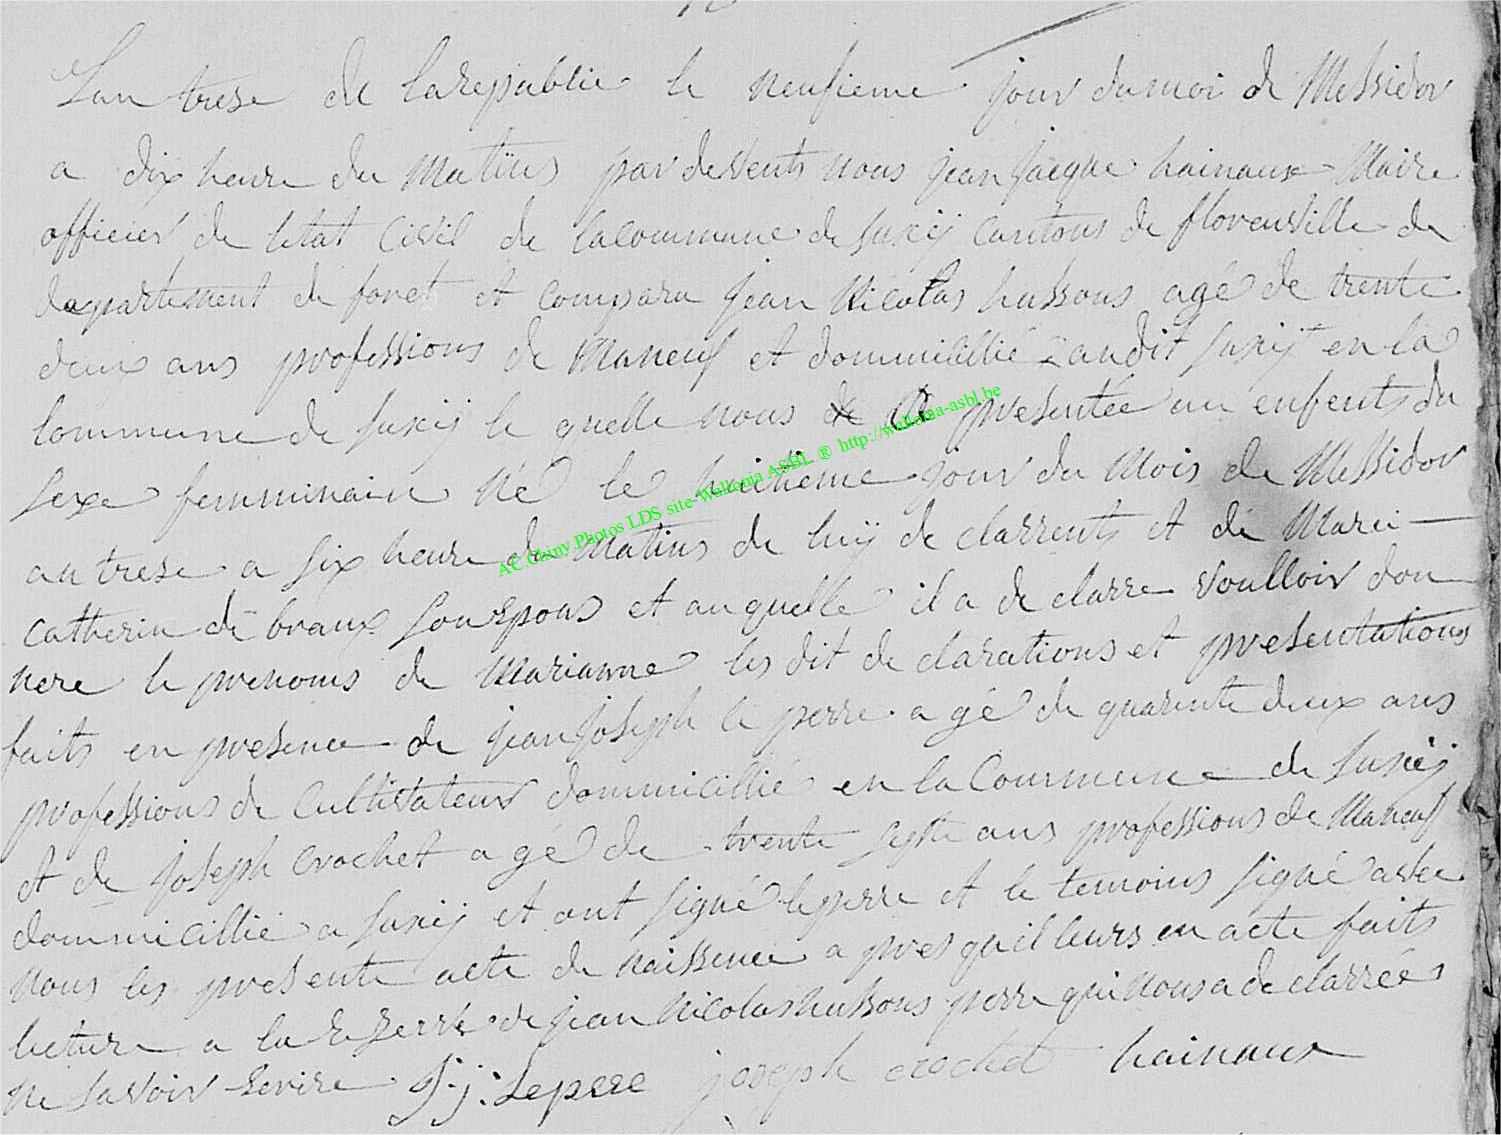 Lan trese de la republic le neufieme jour du moi de Messidor
a dix heure du Matins par devents nous jean jacque hainaux Maire
officier de letat Civil de la commune de Suxij Cantons de florenville de
departement de foret et comparu jean Nicolas hussons agé de trente
deux ans professions de Maneuf et dommicillié audit Suxij en la
Commune de Suxij le quelle nous a presentée un enfents du
Sexe femminain né le huitieme jour du Mois de Messidor
an trese a six heure du Matins de luij declarrents et de Marei -
Catherin de braux Son Epous et au quelle il a de clarre Voulloir don
nere le prenoms de Marianne les dit de clarations et presentations
faits en presence de jean joseph le perre agé de quarente deux ans
professions de Cultivateur dommicillié en la Commune de Suxij
et de joseph Crochet agé de trente septe ans professions de Maneuf
dommicillié a Suxij et ont signé le perre et le temoins signé avec
nous les presente acte de naissence apres quil leurs en acte faits
lecture a la Eserve de jean Nicolas hussons perre qui nous a de clarrée
ne savoir Ecrire J.j: Lepere joseph crochet hainaux
AC Chiny Photos LDS site-Wallonia ASBL ® http://wallonia-asbl.be